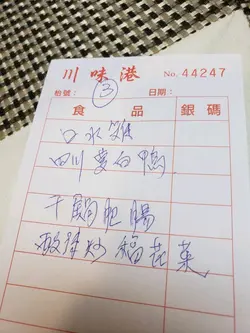 川味港 No. 44247
枱號: 3 日期:
食品 銀碼
口水雞
四川 鴨
干鍋肥腸
炒 花菜